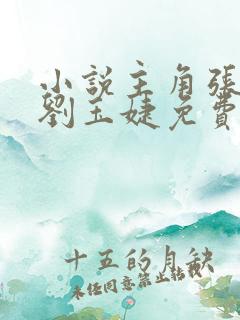 小説主角張
劉玉婕免費
十五的月缺
未經同意禁止轉載